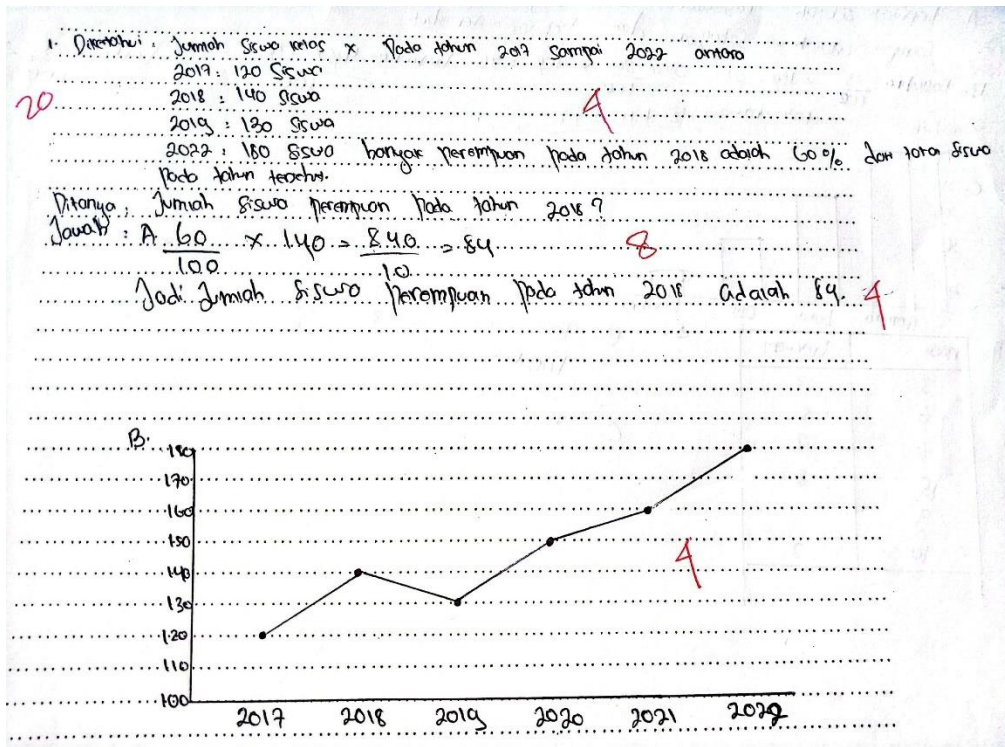 1. Diketahui : Jumlah Siswa kelas X Pada tahun 2017 sampai 2022 antara
2017 : 120 Siswa
20
2018 : 140 Siswa
4
2019 : 130 Siswa
2022 : 180 Siswa banyak perempuan pada tahun 2018 adalah 60% dari total siswa
Pada tahun tersebut.
Ditanya : Jumlah siswa perempuan pada tahun 2018 ?
Jawab : A 60/100 × 140 = 840/10 = 84
8
Jadi Jumlah siswa perempuan pada tahun 2018 adalah 84.
4
B.
180
170
160
150
140
4
130
120
110
100
2017 2018 2019 2020 2021 2022